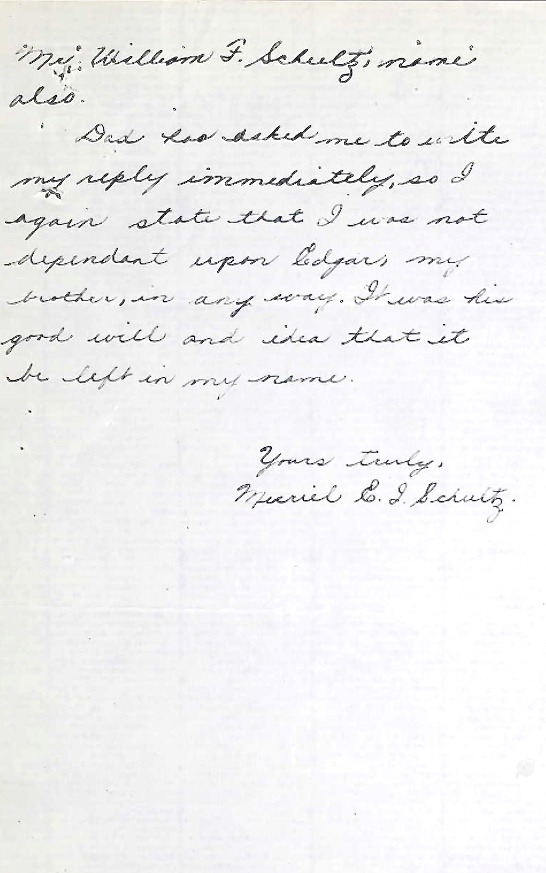 Mr. William F. Schultz, name
also.
Dad has asked me to write
my reply immediately, so I
again state that I was not
dependant upon Edgar, my
brother, in any way. It was his
good will and idea that it
be left in my name.
Yours truly,
Muriel E. I. Schultz.